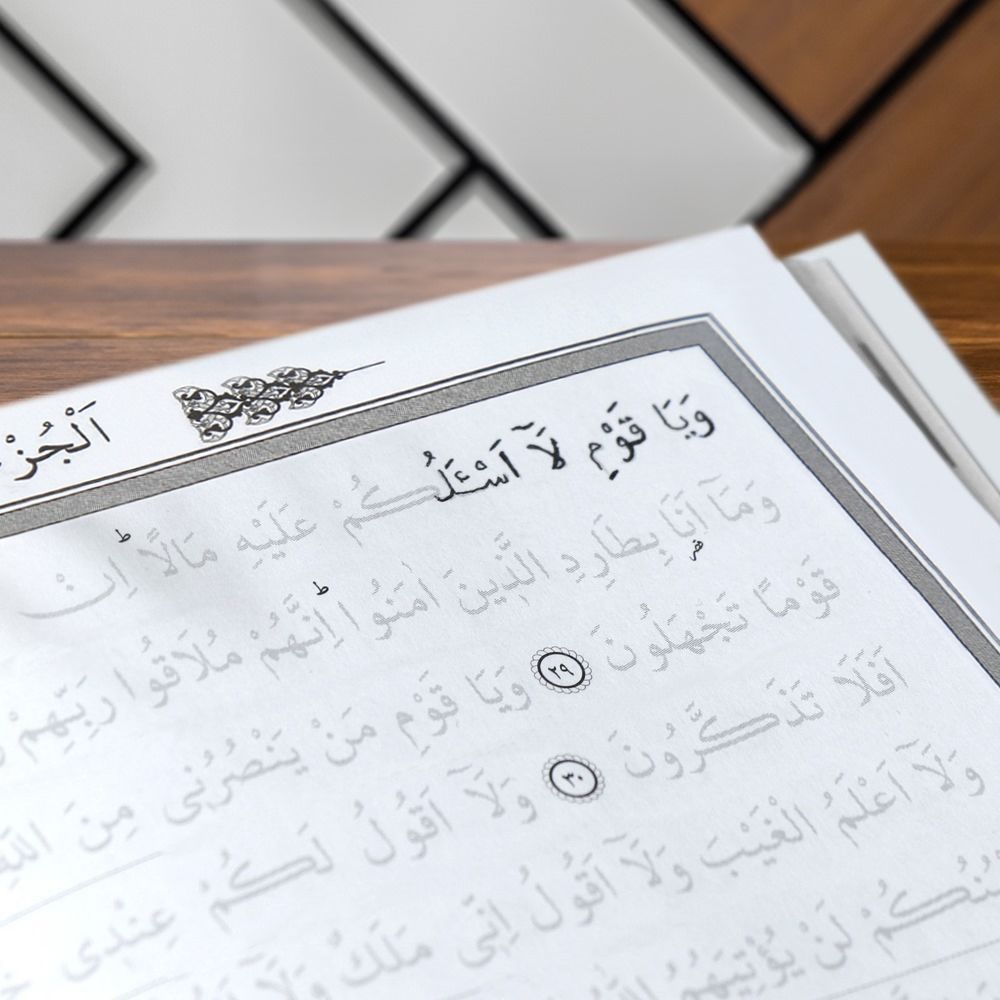 اَلْجُزْ
وَيَا قَوْمِ لَٓا اَسْـَٔلُكُمْ عَلَيْهِ مَالًاۜ اِنْ
وَمَٓا اَنَا۬ بِطَارِدِ الَّذِينَ اٰمَنُواۜ اِنَّهُمْ مُلَاقُوا رَبِّهِمْ
قَوْمًا تَجْهَلُونَ ﴿٢٩﴾ وَيَا قَوْمِ مَنْ يَنْصُرُنِى مِنَ
اَفَلَا تَذَكَّرُونَ ﴿٣٠﴾ وَلَٓا اَقُولُ لَكُمْ عِنْدِى
وَلَٓا اَعْلَمُ الْغَيْبَ وَلَٓا اَقُولُ اِنِّى مَلَكٌ وَلَٓا
لَنْ يُؤْتِيَهُمُ